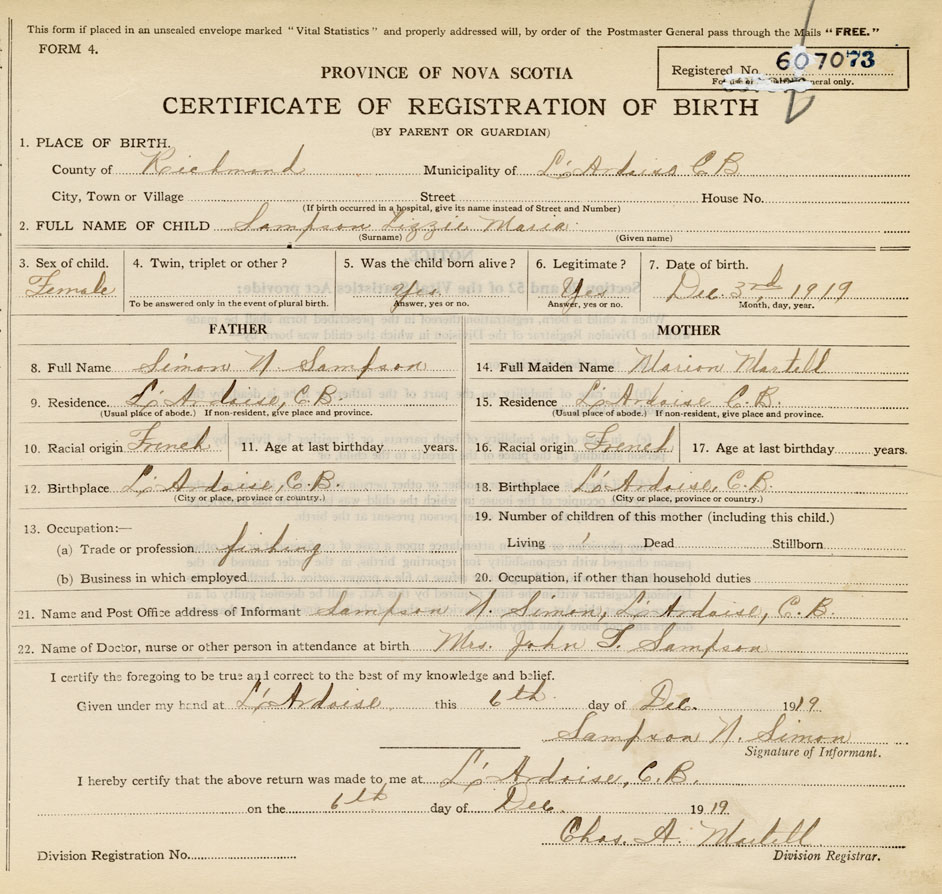 This form if placed in an unsealed envelope marked "Vital Statistics" and properly addressed will, by order of the Postmaster General pass through the Mails "FREE."
FORM 4.
Registered No. 607073
PROVINCE OF NOVA SCOTIA
CERTIFICATE OF REGISTRATION OF BIRTH
(BY PARENT OR GUARDIAN)
1. PLACE OF BIRTH.
County of Richmond Municipality of L'Ardoise C.B
City, Town or Village Street House No.
(If birth occurred in a hospital, give its name instead of Street and Number)
2. FULL NAME OF CHILD Sampson Lizzie Maria
(Surname) (Given name)
3. Sex of child. 4. Twin, triplet or other? 5. Was the child born alive? 6. Legitimate? 7. Date of birth.
Female Yes Yes Dec. 3rd, 1919
To be answered only in the event of plural birth. Answer, yes or no. Answer, yes or no. Month, day, year.
FATHER MOTHER
8. Full Name Simon N. Sampson 14. Full Maiden Name Marion Martell
9. Residence. L'Ardoise, C.B. 15. Residence L'Ardoise C.B.
(Usual place of abode.) If non-resident, give place and province. (Usual place of abode.) If non-resident, give place and province.
10. Racial origin French 11. Age at last birthday years. 16. Racial origin French 17. Age at last birthday years.
12. Birthplace L'Ardoise, C.B. 18. Birthplace L'Ardoise, C.B.
(City or place, province or country.) (City or place, province or country.)
13. Occupation:— 19. Number of children of this mother (including this child.)
(a) Trade or profession fishing Living 1 Dead Stillborn
(b) Business in which employed 20. Occupation, if other than household duties
21. Name and Post Office address of Informant Sampson N. Simon, L'Ardoise, C.B.
22. Name of Doctor, nurse or other person in attendance at birth Mrs. John T. Sampson
I certify the foregoing to be true and correct to the best of my knowledge and belief.
Given under my hand at L'Ardoise this 6th day of Dec. 1919.
Sampson N. Simon
Signature of Informant.
I hereby certify that the above return was made to me at L'Ardoise, C.B.
on the 6th day of Dec. 1919.
Chas. A. Martell
Division Registration No. Division Registrar.